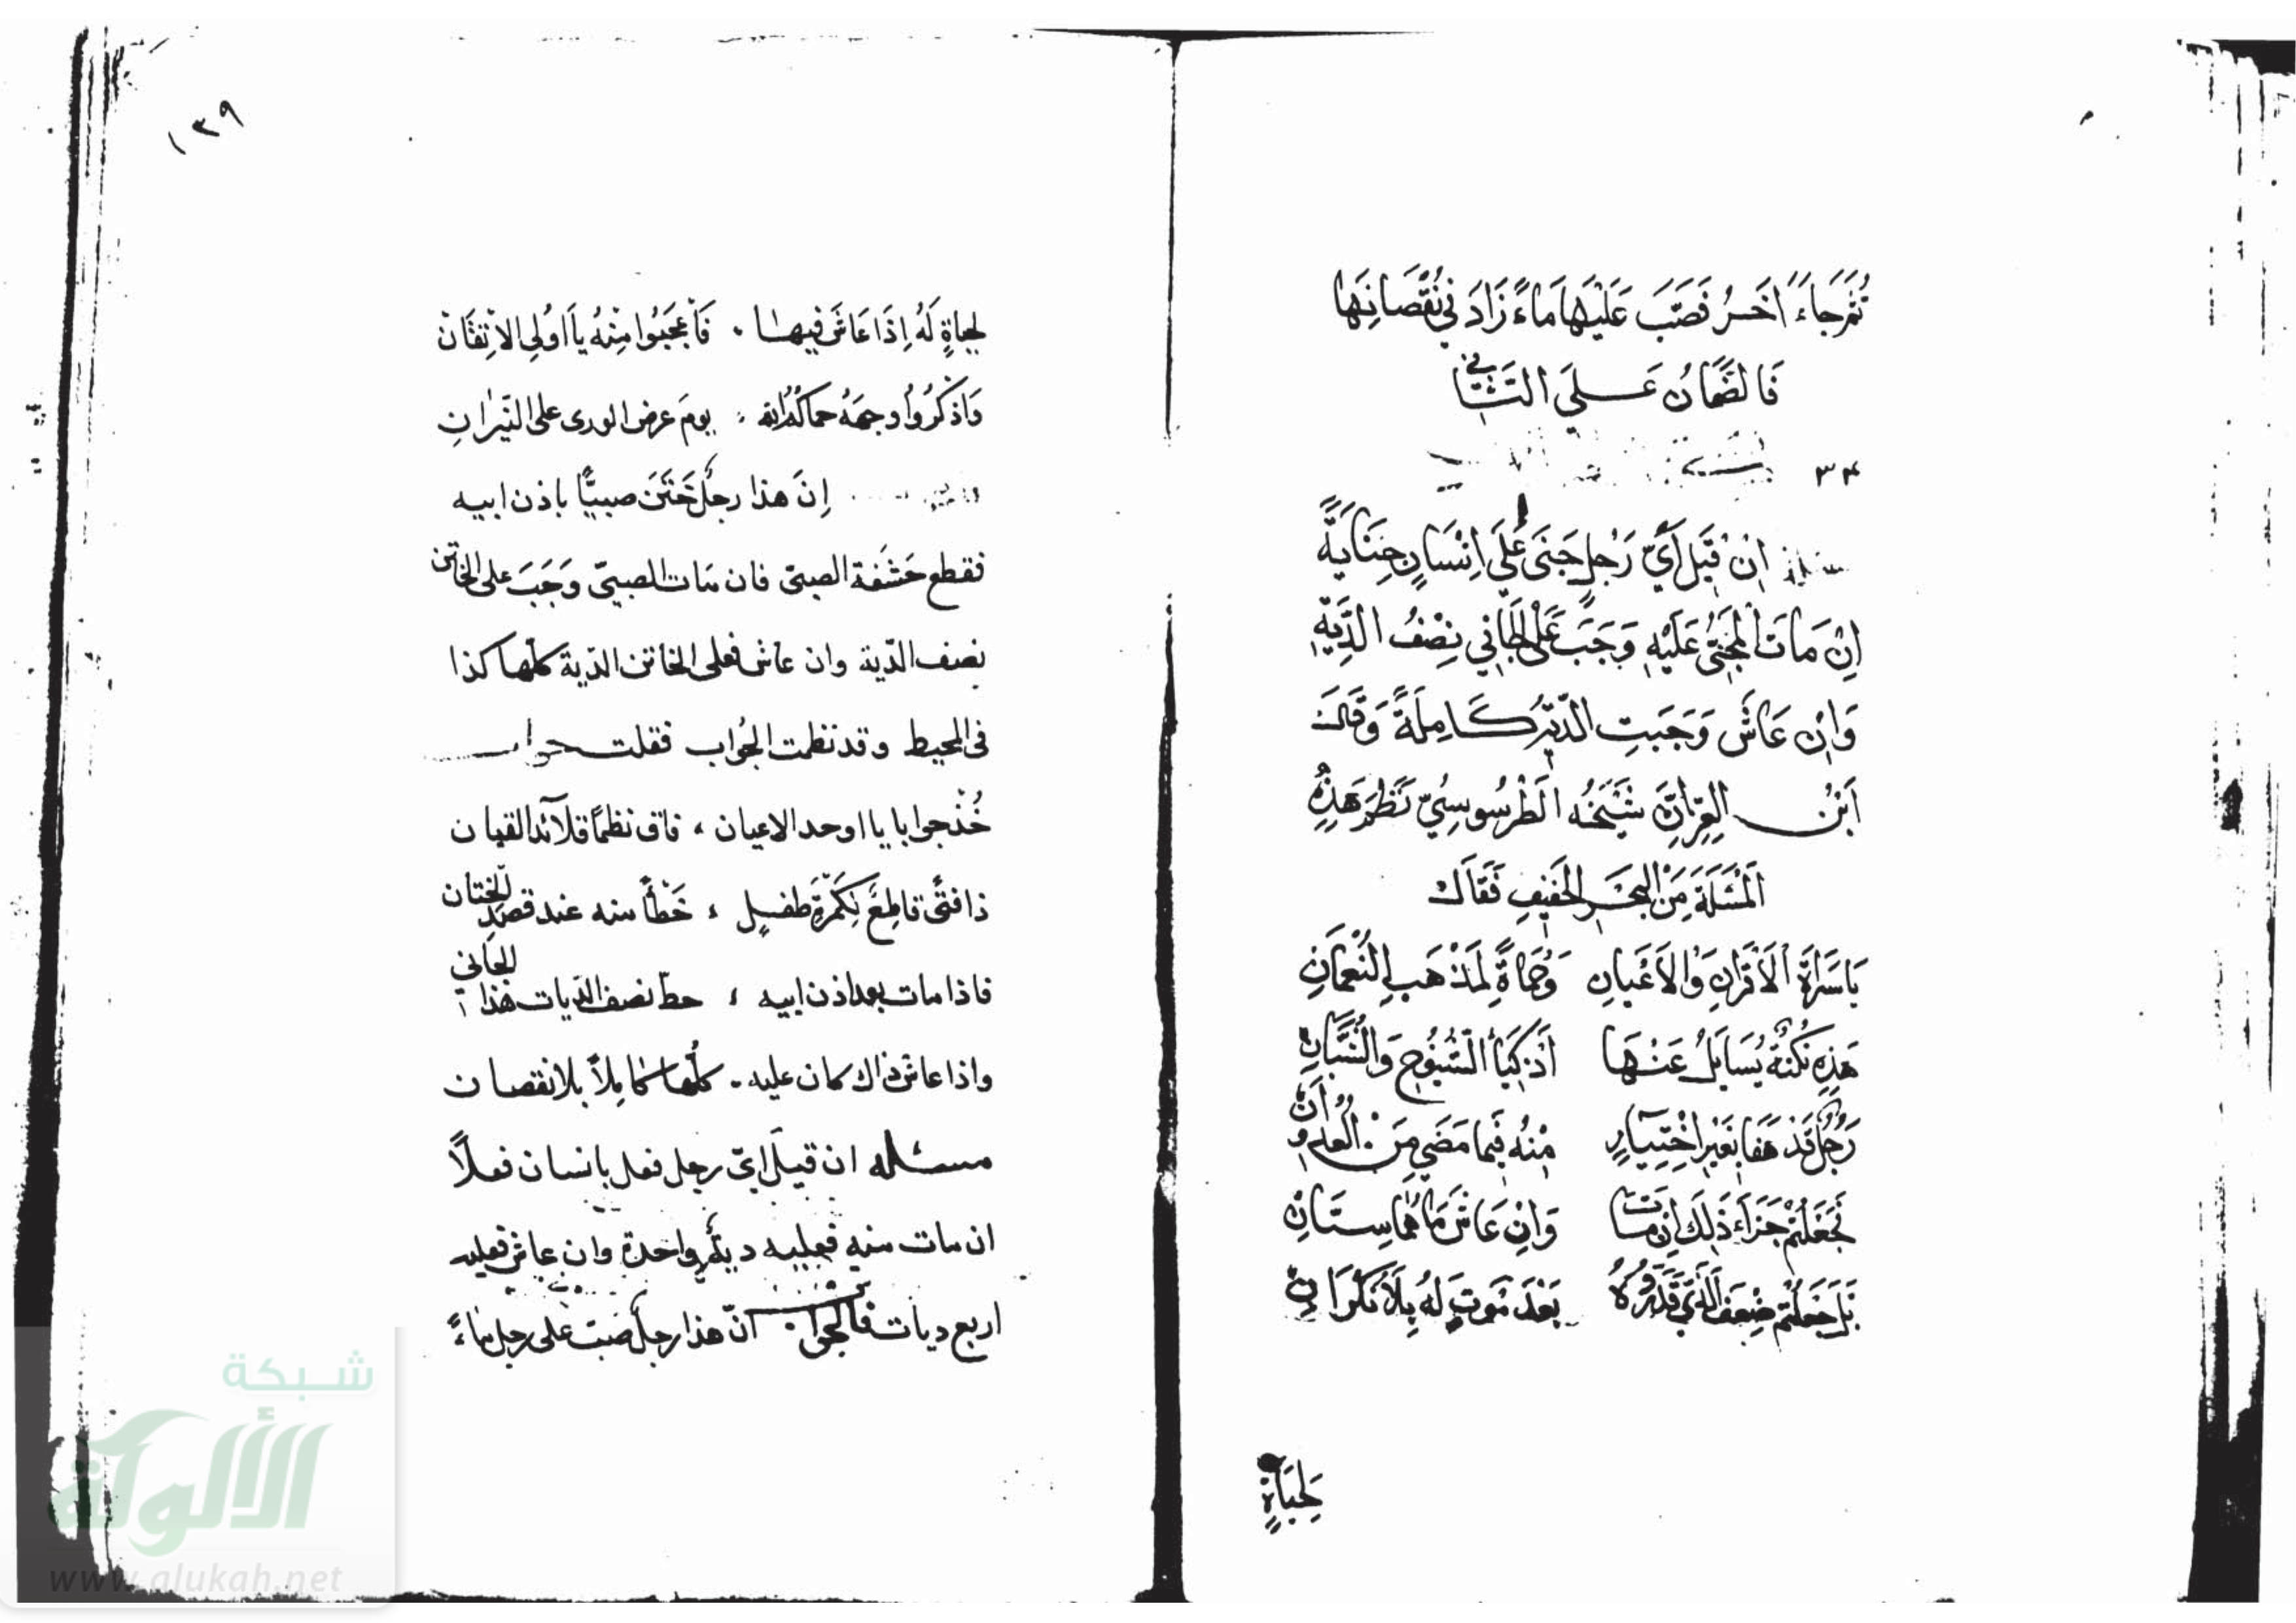 ثُمَّ جَاءَ اٰخَرُ فَصَبَّ عَلَيْهَا مَاءً زَادَ فِي نُقْصَانِهَا
فَالضَّمَانُ عَلَى الثَّانِي
٣٤
اِنْ قِيلَ اَيُّ رَجُلٍ جَنَى عَلَى اِنْسَانٍ جِنَايَةً
اِنْ مَاتَ الْمَجْنِيُّ عَلَيْهِ وَجَبَ عَلَى الْجَانِي نِصْفُ الدِّيَةِ
وَاِنْ عَاشَ وَجَبَتِ الدِّيَةُ كَامِلَةً وَقَالَ
اَبْنُ الْعِزِّ اِنَّ شَيْخَهُ الطَّرْسُوسِيَّ نَظَمَ هَذِهِ
الْمَسْئَلَةَ مِنَ الْبَحْرِ الْخَفِيفِ فَقَالَ
يَا سَرَاةَ الْاَقْرَانِ وَالْاَعْيَانِ وَحُمَاةً لِمَذْهَبِ النُّعْمَانِ
هَذِهِ نُكْتَةٌ يُسَايَلُ عَنْهَا اَذْكِيَاءُ الشُّيُوخِ وَالشُّبَّانِ
رَجُلٌ قَدْ هَفَا بِغَيْرِ اخْتِيَارٍ مِنْهُ فِيمَا مَضَى مِنَ الْعُدْوَانِ
فَجَعَلْتُمْ جَزَاءَ ذَلِكَ اِنْ مَاتَ وَاِنْ عَاشَ مَا هُمَا سِيَّانِ
بَلْ جَعَلْتُمْ ضِعْفَ الَّذِي قَدَّرُوهُ بَعْدَ مَوْتٍ لَهُ بِلَا نُكْرَانِ
لِحَيَاةٍ
١٣٩
لحياةٍ لَهُ اِذَا عَاشَ فِيهَا فَاعْجَبُوا مِنْهُ يَا اُولِي الْاِتْقَانْ
وَاذْكُرُوا وجهَهُ حماكُمْ الله يومَ عرض الورى على النّيرانِ
اِنَّ هذا رجلٌ خَتَنَ صبيًّا باذن ابيه
فقطع حَشَفة الصبيّ فان مات الصبيّ وَجَبَ على الخاتن
نصف الدّية وان عاش فعلى الخاتن الدّية كلّها كذا
فى المحيط وقد نظمت الجواب فقلت جواب
خُذْ جوابا يا اوحد الاعيان فاق نظمًا قلآئد القيان
ذا فتًى قاطِعٌ لِكَمَرَةِ طفلٍ خَطْأً منه عند قصدِ الختان
فاذا مات بعد اذن ابيه حطّ نصف الدّيات هذا الجانى
واذا عاش ذاك كان عليه كلّها كاملاً بلا نقصان
مسئله ان قيل اىّ رجل فعل بانسان فعلاً
ان مات منه فعليه ديةٌ واحدة وان عاش فعليه
اربع ديات فالجواب انّ هذا رجلٌ صبّ على رجل مآءً
شبكة
الألوكة
www.alukah.net